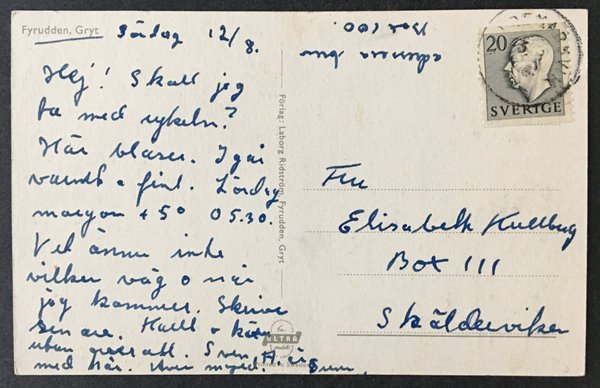 Fyrudden, Gryt
Söndag 12/8.
Hej! Skall jag
ta med cykeln?
Här blåser. Igår
varmt o fint. Lördag
morgon +5° 05.30.
Vet ännu inte
vilken väg o när
jag kommer. Skriver
senare.
utan
Sven
med här.
Förlag: Laborg Ridström, Fyrudden, Gryt
ULTRA
Box 100.
20
SVERIGE
Fru
Elisabeth Kullberg
Box 111
Skälderviken